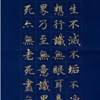 生不滅不垢不
想行識無眼耳
界乃至無意識
死亦無老死盡